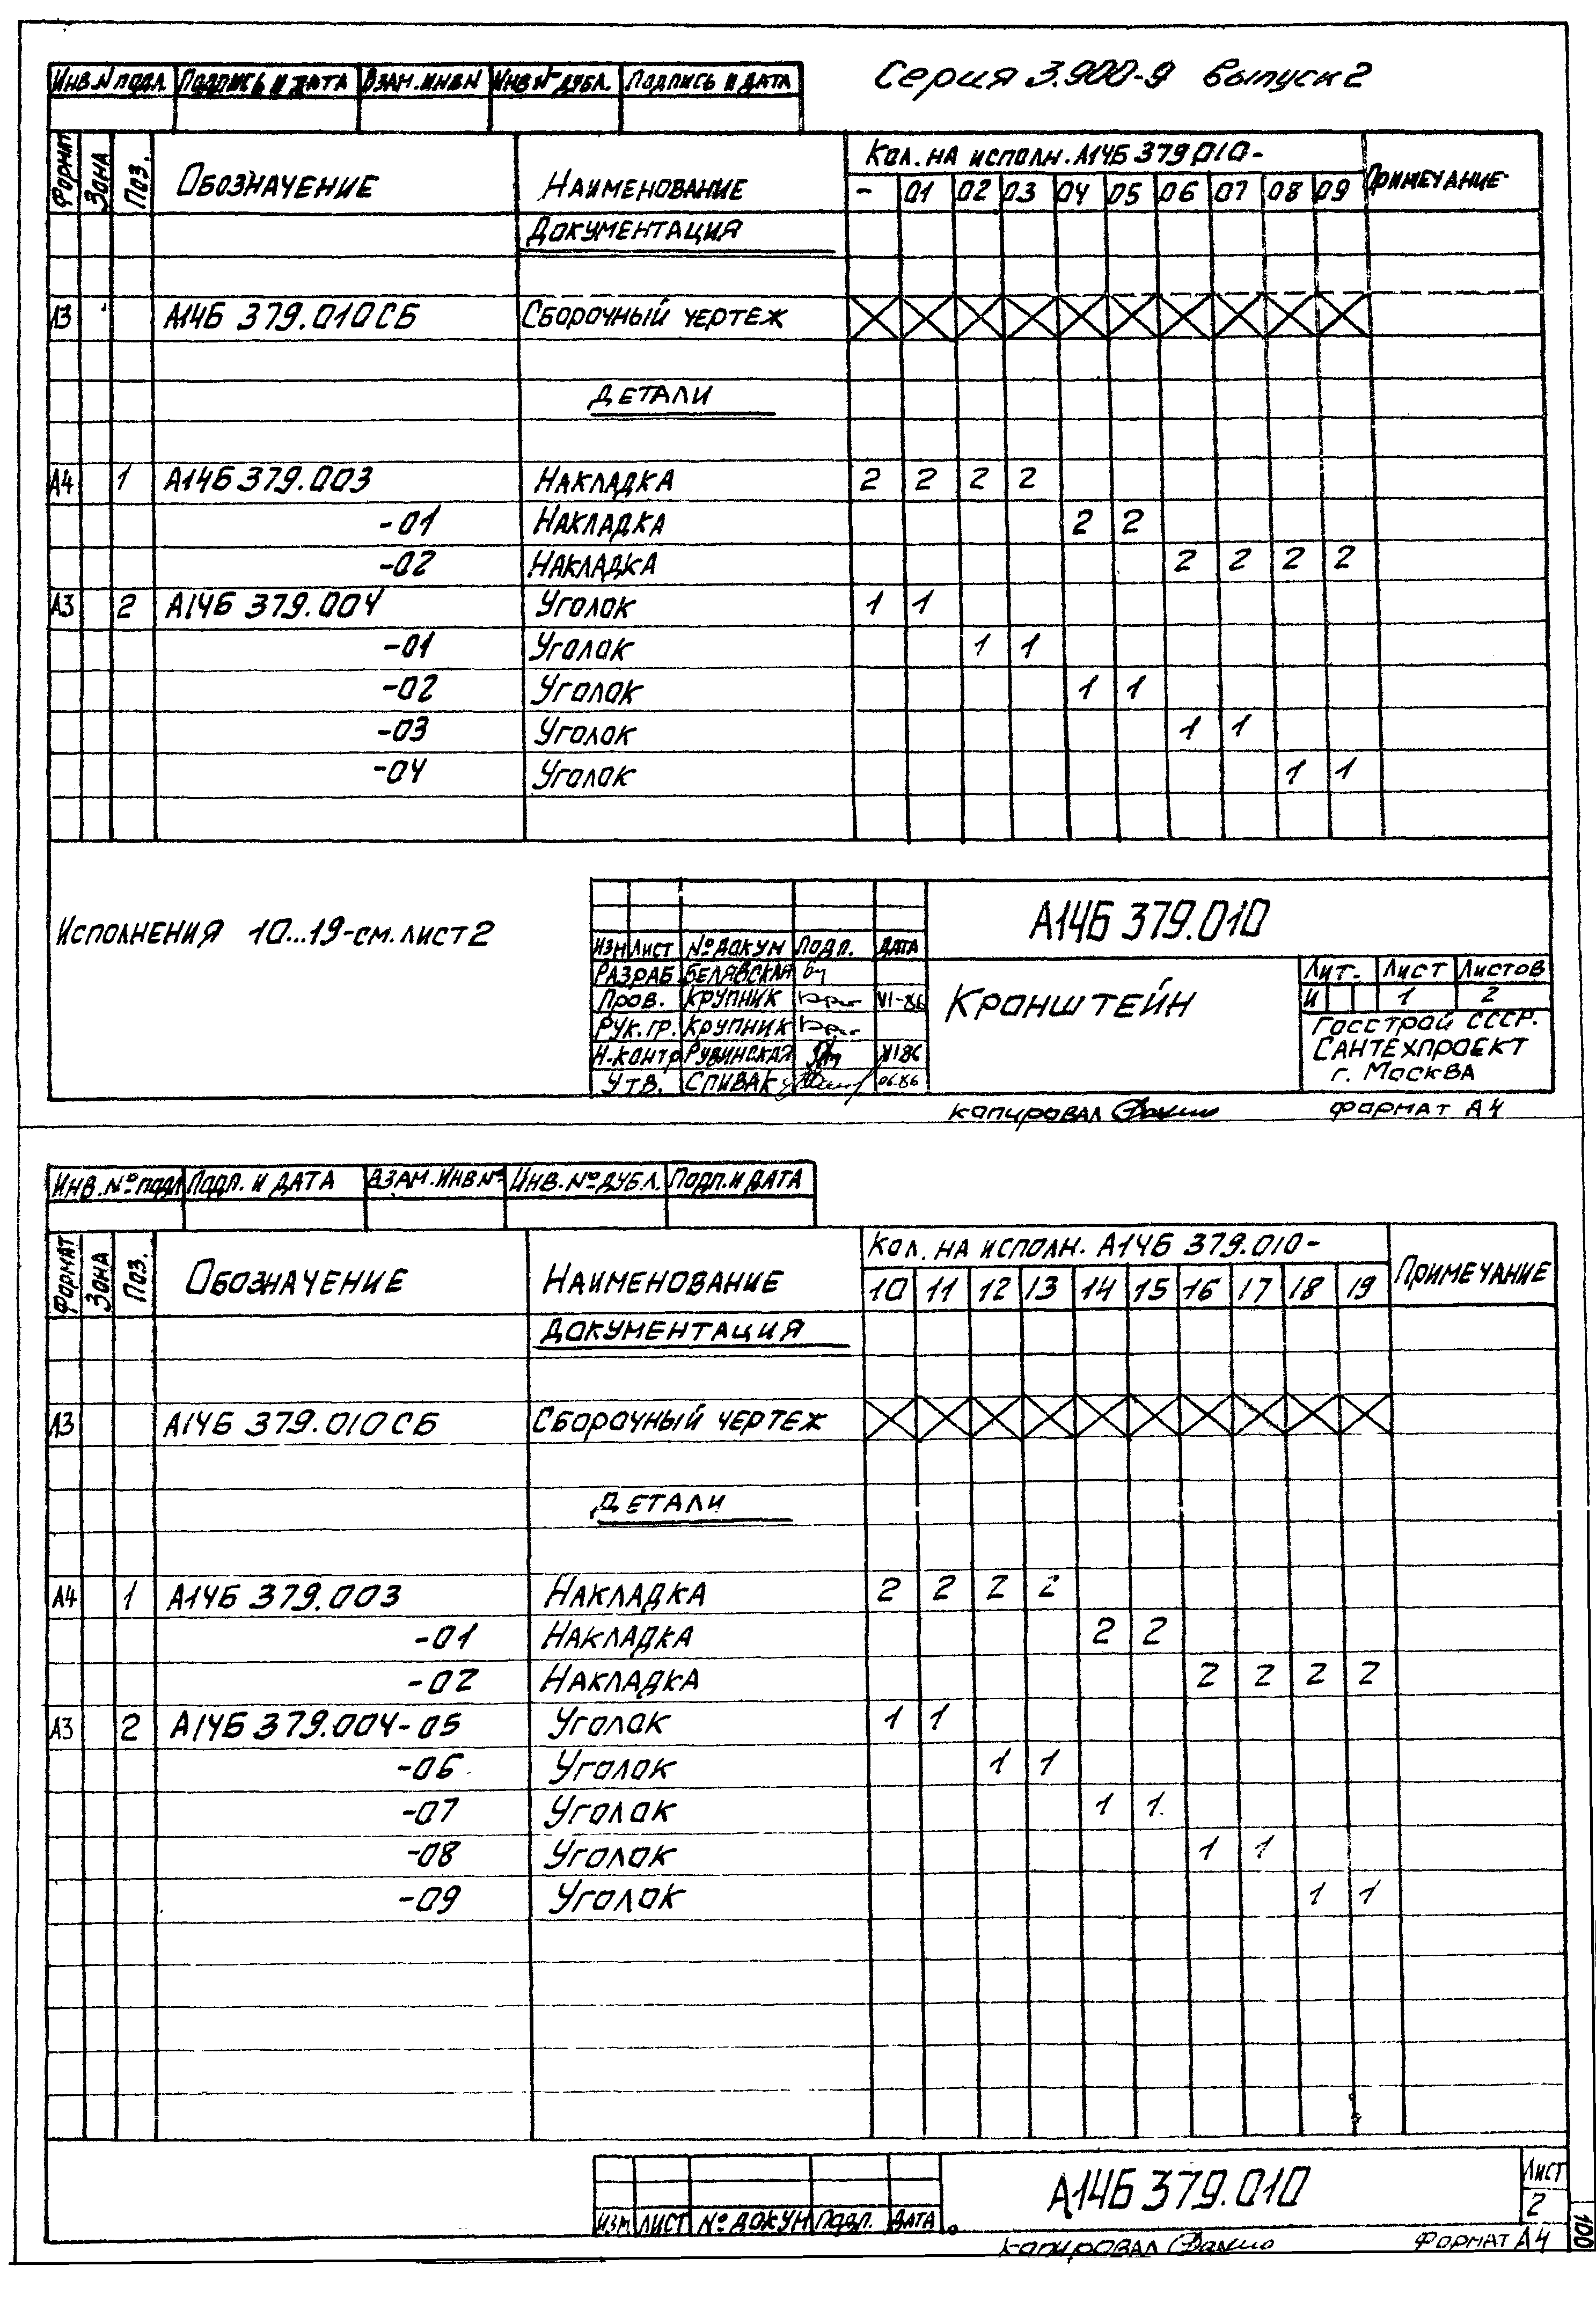 Серия 3.900-9 выпуск 2
Инв.N подл. Подпись и дата Взам.инвN Инв N дубл. Подпись и дата
Формат Зона Поз. Обозначение Наименование Кол. на исполн. А14Б 379.010- Примечание
- 01 02 03 04 05 06 07 08 09
Документация
А3 А14Б 379.010СБ Сборочный чертеж
Детали
А4 1 А14Б 379.003 Накладка 2 2 2 2
-01 Накладка 2 2
-02 Накладка 2 2 2 2
А3 2 А14Б 379.004 Уголок 1 1
-01 Уголок 1 1
-02 Уголок 1 1
-03 Уголок 1 1
-04 Уголок 1 1
Исполнения 10...19-см. лист 2
А14Б 379.010
Изм Лист № докум Подп. Дата
Разраб Белявская
Пров. Крупник VI-86
Рук.гр. Крупник
Н-контр Рувинская VI 86
Утв. Спивак 06.86
Кронштейн
Лит. Лист Листов
И 1 2
Госстрой СССР.
Сантехпроект
г. Москва
копировал Формат А4
Инв.№ подл Подп. и дата Взам.Инв№ Инв.№ дубл. Подп. и дата
Формат Зона Поз. Обозначение Наименование Кол. на исполн. А14Б 379.010- Примечание
10 11 12 13 14 15 16 17 18 19
Документация
А3 А14Б 379.010СБ Сборочный чертеж
Детали
А4 1 А14Б 379.003 Накладка 2 2 2 2
-01 Накладка 2 2
-02 Накладка 2 2 2 2
А3 2 А14Б 379.004-05 Уголок 1 1
-06 Уголок 1 1
-07 Уголок 1 1
-08 Уголок 1 1
-09 Уголок 1 1
Изм Лист № докум Подп. Дата
А14Б 379.010
Лист
2
копировал Формат А4
100